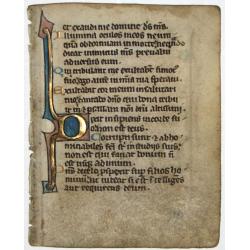 et exaudi me domine ds ms.
Illumina oculos meos ne um
qua obdormiam in morte nequando
dicat inimicus ms prevalui
adversus eum.
Qui tribulant me exultabunt si mot
fuero ego autem in mia tua speravi
Exultabit cor meum in salutari
tuo cantabo dno qui bona tribuit
m & psallam noi dni altissimi.
Dixit insipiens in corde suo
non est deus.
Corrupti sunt & abho
minabiles fci st in studiis suis
non est qui faciat bonum n
est usq ad unum.
Dns de celo prospexit sup filios ho
minum ut videat si est intelliges
aut requirens deum.